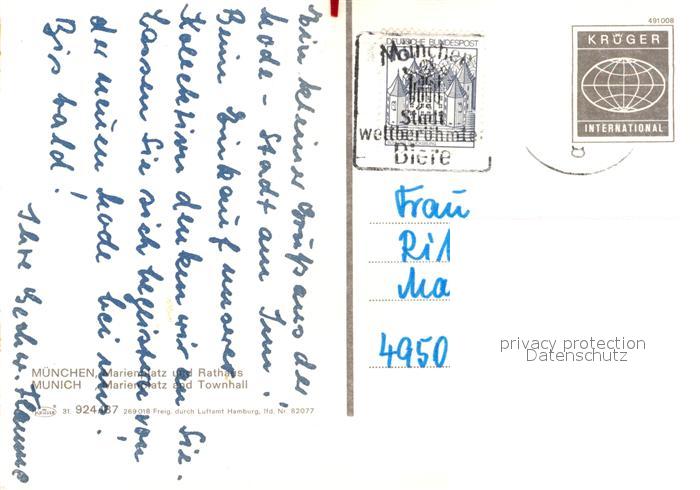 Ein kleiner Gruß aus der
Mode-Stadt am Inn!
Beim Einkauf unserer
Kolecktion denken wir an Sie.
Lassen Sie sich begeistern von
der neuen Mode bei uns.
Bis bald!
Ihre Geschw.
MÜNCHEN, Marienplatz und Rathaus
MUNICH , Marienplatz and Townhall
KRÜGER 31. 924/37 269018 Freig. durch Luftamt Hamburg, lfd. Nr. 82077
DEUTSCHE BUNDESPOST
München
Stadt
weltberühmter
Biere
491008
KRÜGER
INTERNATIONAL
Frau
Ma
4950
privacy protection
Datenschutz